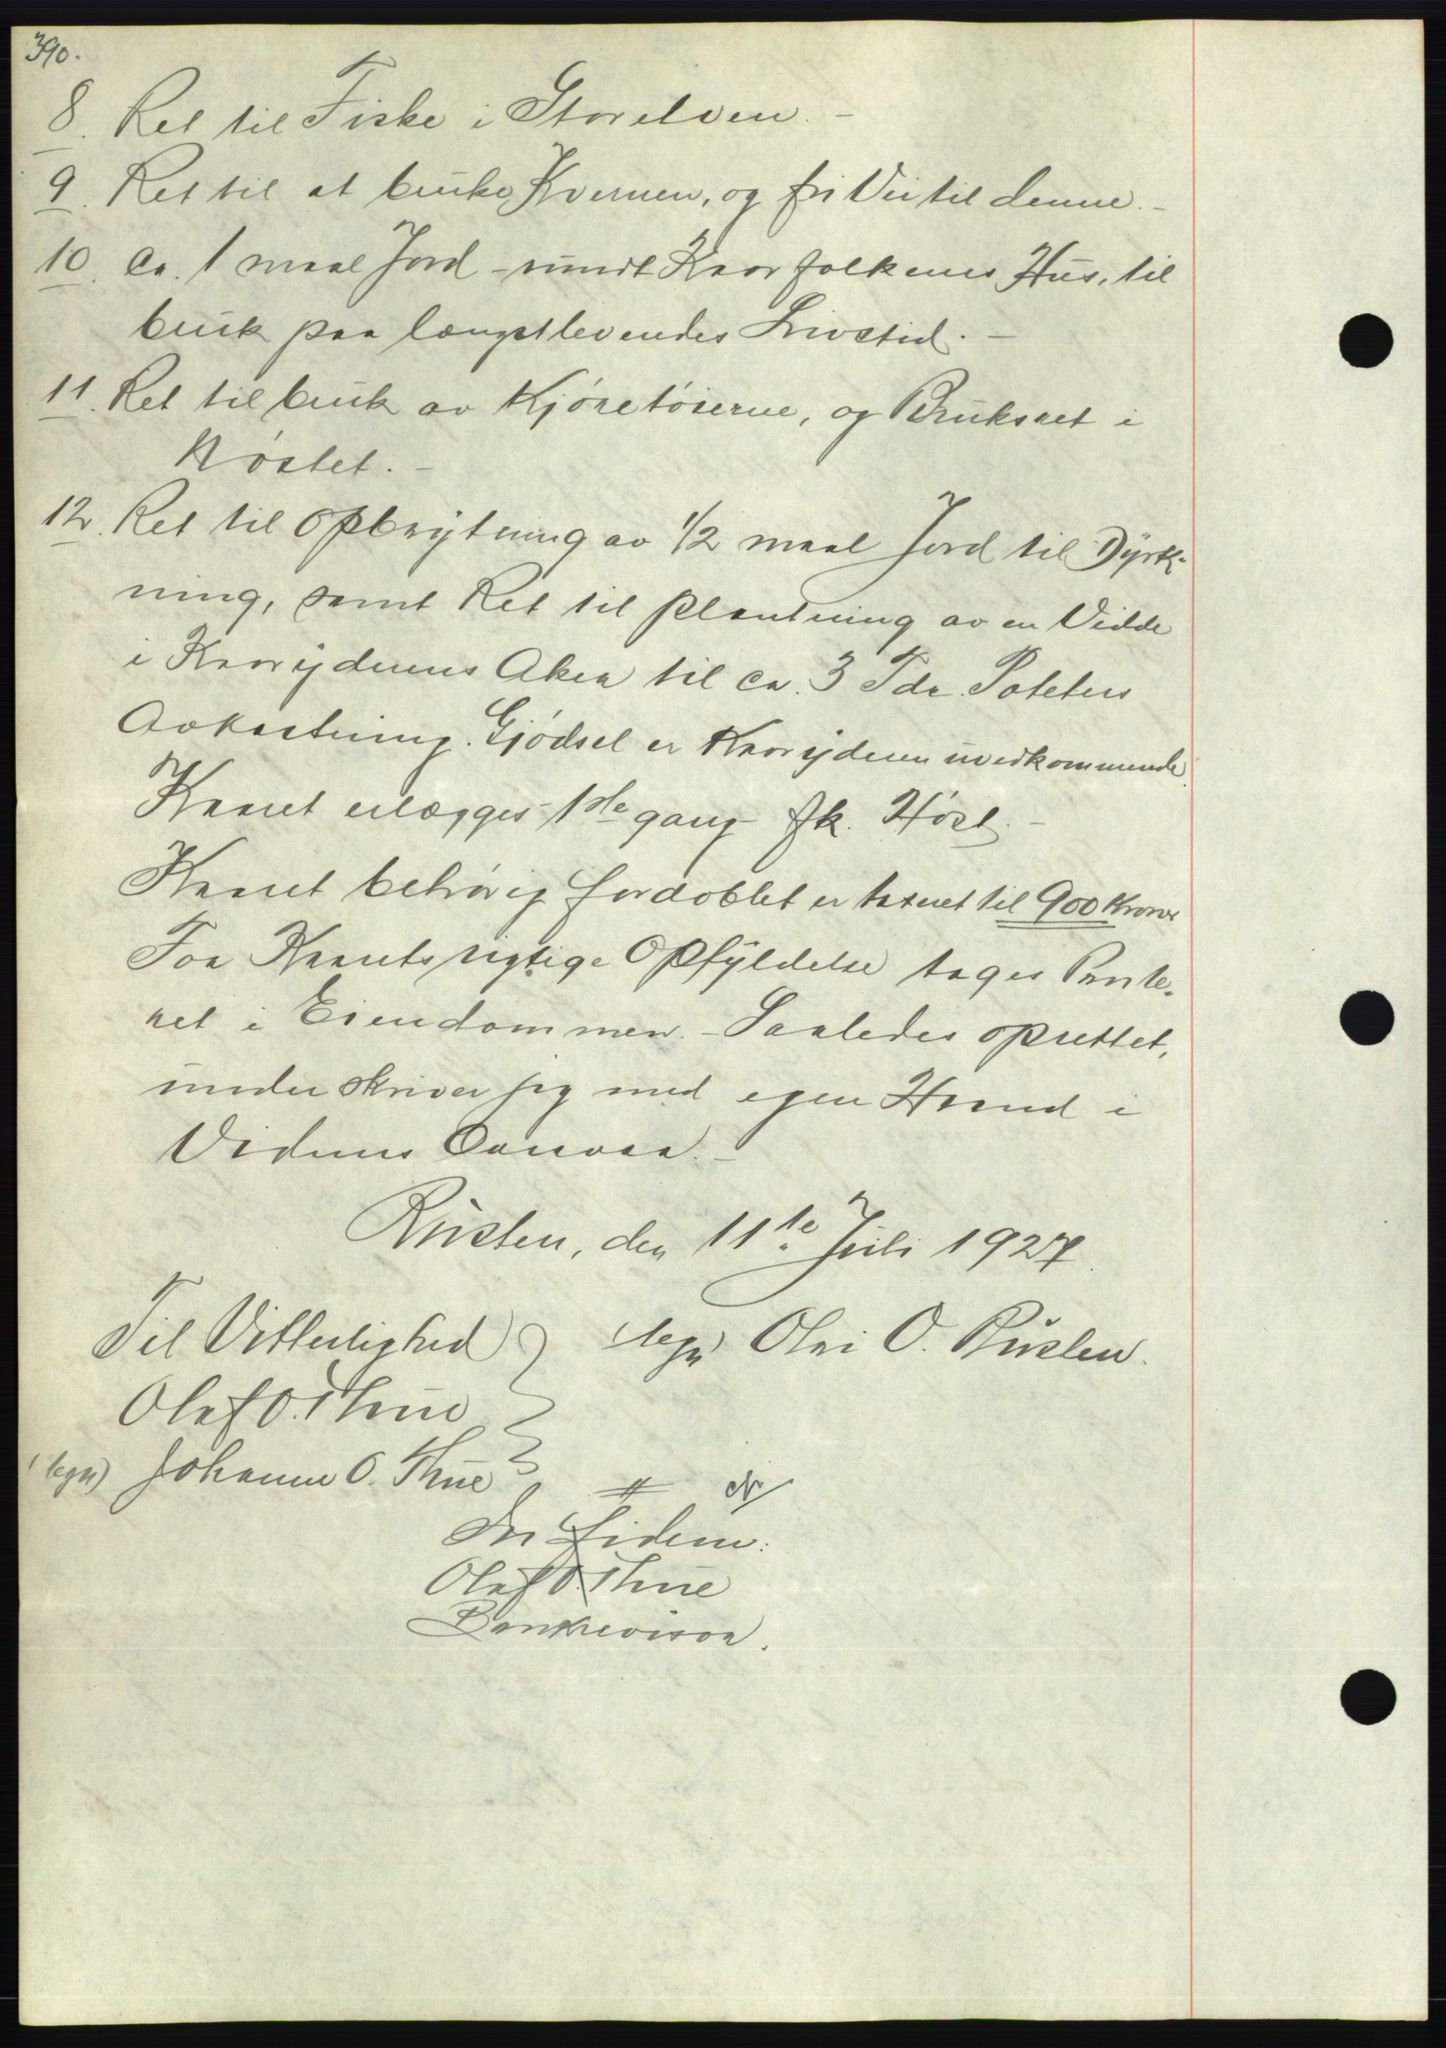 390.
8. Ret til Fiske i Storelven. -
9. Ret til at bruke Kvernen, og fri Vei til denne. -
10. Ca. 1 maal Jord - rundt Kaarfolkenes Hus, til
bruk paa længstlevendes Livstid. -
11. Ret til bruk av Kjöretöierne, og Bruksret i
Nöstet. -
12. Ret til Opbrytning av 1/2 maal Jord til Dyrk-
ning, samt Ret til Plantning av en Vidde
i Kaaryderens Aker til ca. 3 Tdr. Poteters
Avkastning. Gjödsel er Kaaryderen uvedkommende.
Kaaret erlægges 1ste gang fk. Höst. -
Kaaret behörig fordoblet er taxeret til 900 Kroner
For Kaarets rigtige Opfyldelse tages Pante-
ret i Eiendommen. - Saaledes oprettet,
underskriver jeg med egen Haand i
Vidners Overvær. -
Rusten, den 11te Juli 1927.
Til Vitterlighed (tegn) Olai O. Rusten.
Olaf O. Thue
(tegn) Johanne O. Thue
In Fidem:
Olaf O. Thue
Bankrevisor.